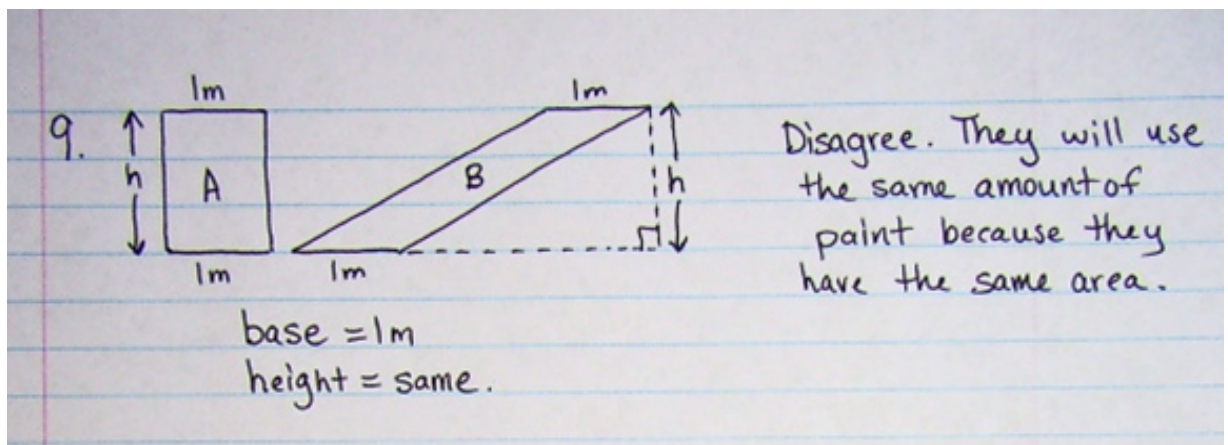 9.
1m
h
A
1m
1m
B
h
1m
Disagree. They will use
the same amount of
paint because they
have the same area.
base = 1m
height = same.